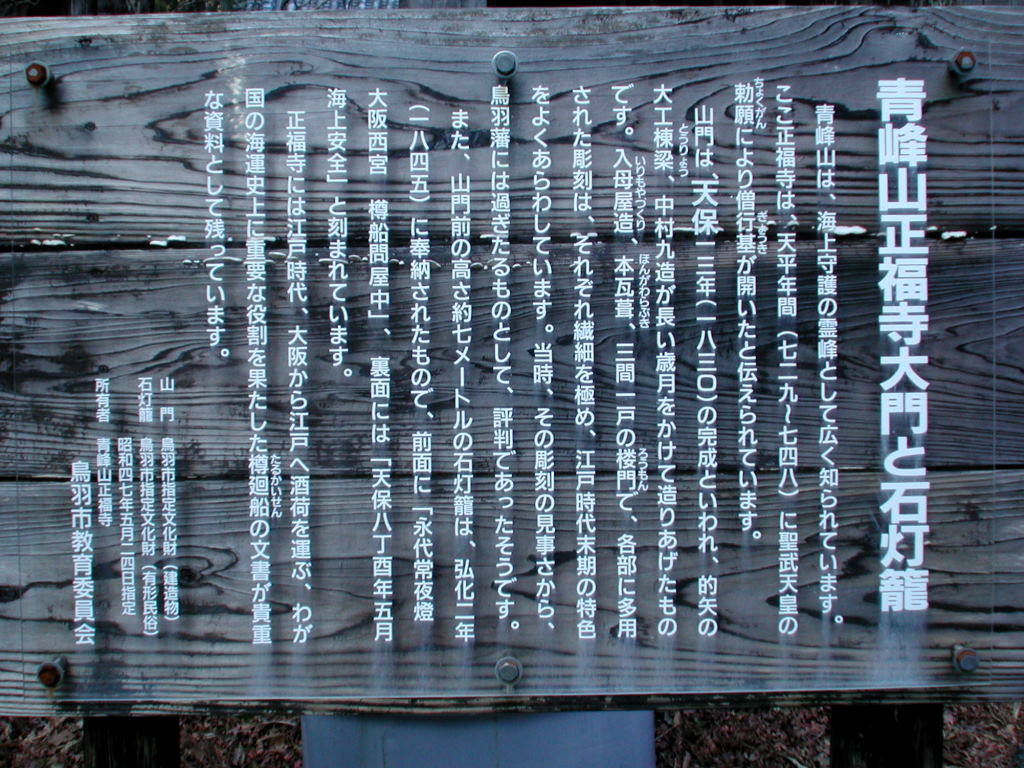 青峰山正福寺大門と石灯籠
青峰山は、海上守護の霊峰として広く知られています。
ここ正福寺は、天平年間（七二九～七四八）に聖武天皇の
勅願により僧行基が開いたと伝えられています。
山門は、天保一三年（一八三〇）の完成といわれ、的矢の
大工棟梁、中村九造が長い歳月をかけて造りあげたもの
です。入母屋造、本瓦葺、三間一戸の楼門で、各部に多用
された彫刻は、それぞれ繊細を極め、江戸時代末期の特色
をよくあらわしています。当時、その彫刻の見事さから、
鳥羽藩には過ぎたるものとして、評判であったそうです。
また、山門前の高さ約七メートルの石灯籠は、弘化二年
（一八四五）に奉納されたもので、前面に「永代常夜燈
大阪西宮　樽船問屋中」、裏面には「天保八丁酉年五月
海上安全」と刻まれています。
正福寺には江戸時代、大阪から江戸へ酒荷を運ぶ、わが
国の海運史上に重要な役割を果たした樽廻船の文書が貴重
な資料として残っています。
山　門　鳥羽市指定文化財（建造物）
石灯籠　鳥羽市指定文化財（有形民俗）
昭和四七年五月二四日指定
所有者　青峰山正福寺
鳥羽市教育委員会